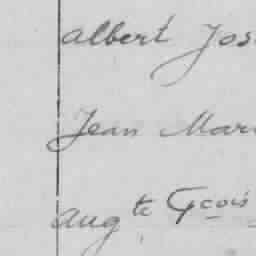 albert Jos
Jean Mar
aug te Gcois